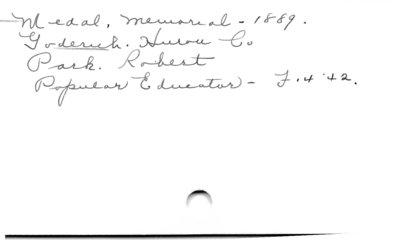 Medal, Memorial - 1889.
Goderich. Huron Co
Park. Robert
Popular Educator - F. 4 '42.